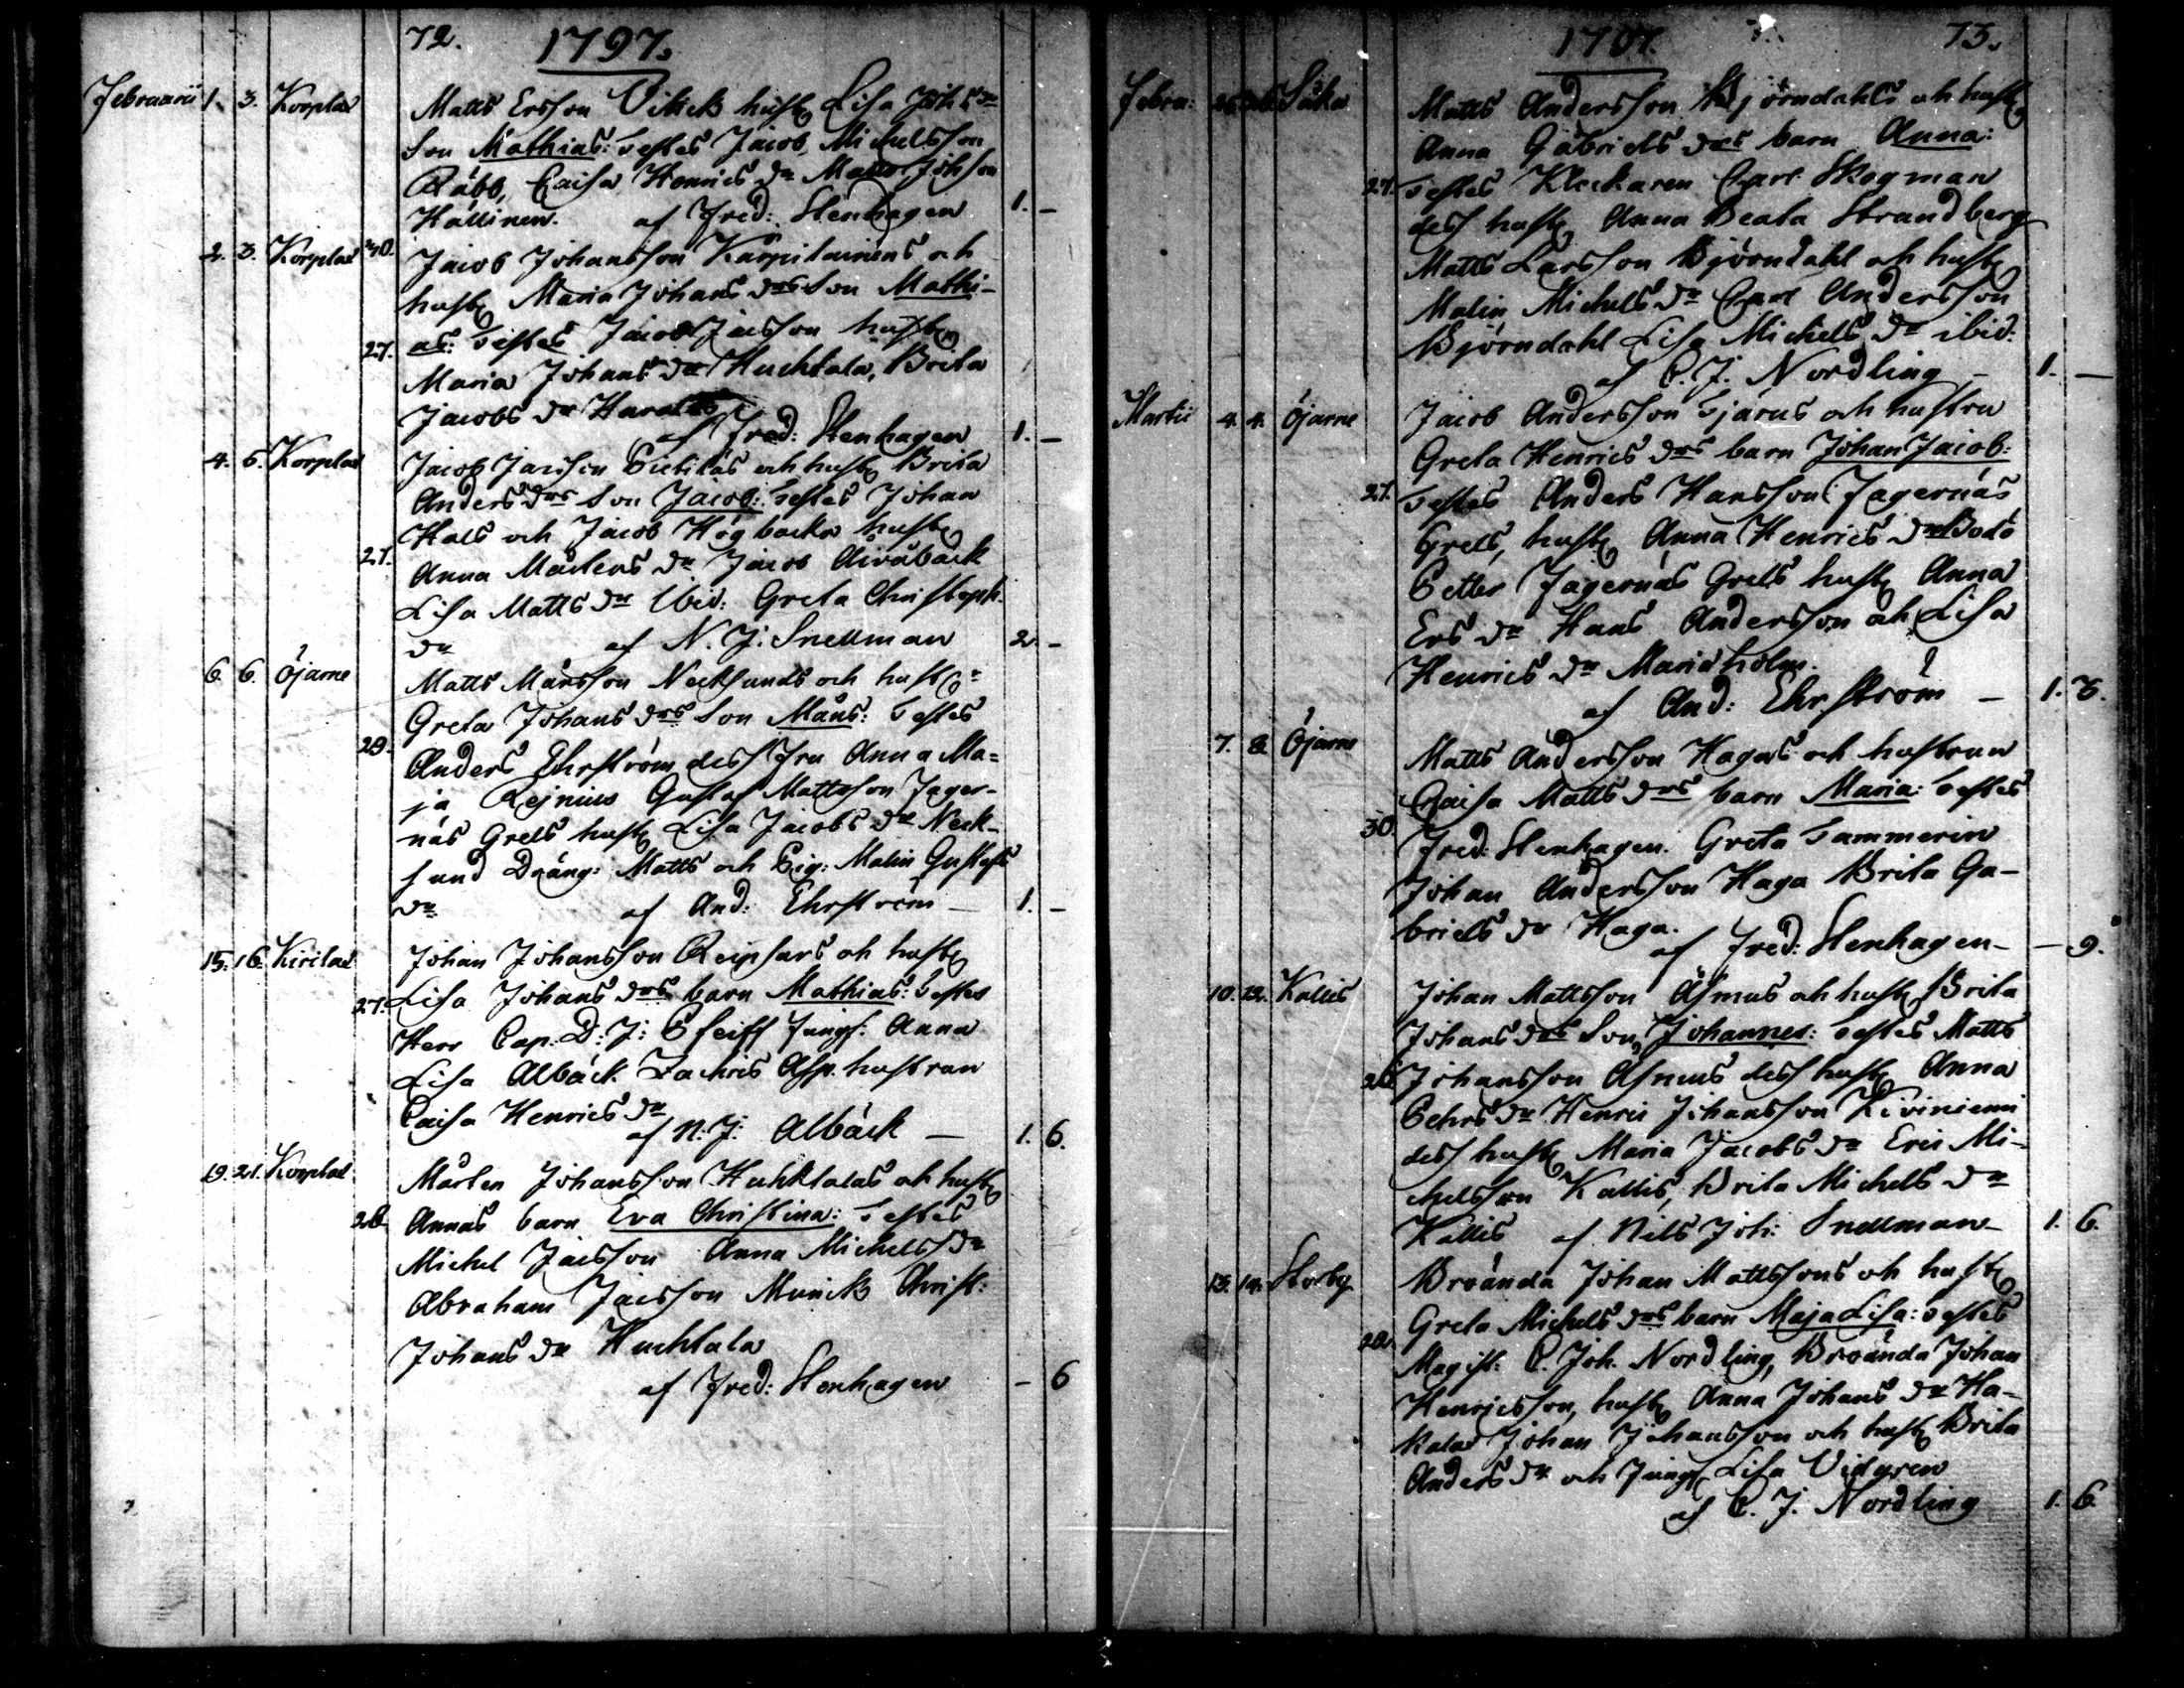 72. 1797.
Februarii 1. 3. Korplax Matts Ersson Vitick hustr Lisa Joh: dr
Son Mathias: Testes Jacob Michelsson
Räbb, Caisa Henrics dr Matts Johsson
Hällinen. af Fred: Stenhagen 1. –
2. 3. Korplax 40. Jacob Johansson Karpilainens och
hustr Maria Johans drs Son Mathi-
27. as: Testes Jacob Jacsson hustr
Maria Johans dr Huchtala, Brita
Jacobs dr
af Fred: Stenhagen 1. –
4. 5. Korplax Jacob Jacsson och hustr Brita
Anders drs Son Jacob: Testes Johan
Hals och Jacob Högbacka hustr
27. Anna Mårtens dr Jacob
Lisa Matts dr Ibid: Greta Christoph.
dr af N. J. Snellman 2. –
6. 6. Öjarne Matts Månsson Necksunds och hustr
Greta Johans drs Son Måns: Testes
29. Anders Ehrström dess Fru Anna Ma=
ja Rejnius Gustaf Mattsson Jager-
näs Grels hustr Lisa Jacobs dr Neck-
sund Dräng: Matts och Pig: Malin Gustafs
dr af And: Ehrström – 1. –
15. 16. Kirilax Johan Johansson Reipsars och hustr
27. Lisa Johans drs barn Mathias: Testes
Herr Cap. D: J: Pfeiff Jungf: Anna
Lisa Albäck Zachris Asp. hustrun
Caisa Henrics dr
af N: J: Albäck – 1. 6.
19. 21. Korplax Mårten Johansson Huhktalas och hustr
28. Annas barn Eva Christina: Testes
Michel Jacsson Anna Michels dr
Abraham Jacsson Munick Christ:
Johans dr Huchtala
af Fred: Stenhagen – 6
73.
Febru: Såka Matts Andersson Björndahls och hustr
Anna Gabriels drs barn Anna:
27. Testes Klockaren Carl Skogman
dess hustr Anna Beata Strandberg
Matts Larsson Björndahl och hustr
Malin Michels dr Carl Andersson
Björndahl Lisa Michels dr ibid:
af C. J. Nordling – 1. –
Martii 4. 4. Öjarne Jacob Andersson Tjärus och hustru
Greta Henrics drs barn Johan Jacob:
27. Testes Anders Hansson Jagernäs
Grels, hustr Anna Henrics dr Bodö
Petter Jagernäs Grels hustr Anna
Ers dr Hans Andersson och Lisa
Henrics dr Mariæholm.
af And: Ehrström – 1. 6.
7. 8. Öjarne Matts Andersson Hagas och hustrun
Caisa Matts drs barn Maria: Testes
30. Fred: Stenhagen. Greta Tammerin
Johan Andersson Haga Brita Ga-
briels dr Haga.
af Fred: Stenhagen – – 9.
10. 12. Kallis Johan Mattsson Asmus och hustr Brita
Johans drs Son, Johannes: Testes Matts
Johansson Asmus dess hustr Anna
Pehrs dr Henric Johansson Kiviniemi
dess hustr Maria Jacobs dr Eric Mi-
chelsson Kallis, Brita Michels dr
Kallis af Nils Joh: Snellman – 1. 6.
13. 14. Storby Broända Johan Mattssons och hustr
Greta Michels drs barn Maja Lisa: Testes
Magist: C. Joh. Nordling, Broända Johan
Henricsson, hustr Anna Johans dr Ha-
kala Johan Johansson och hustr Brita
Anders dr och Jungf Lisa Vidgren
af C. J. Nordling 1. 6.